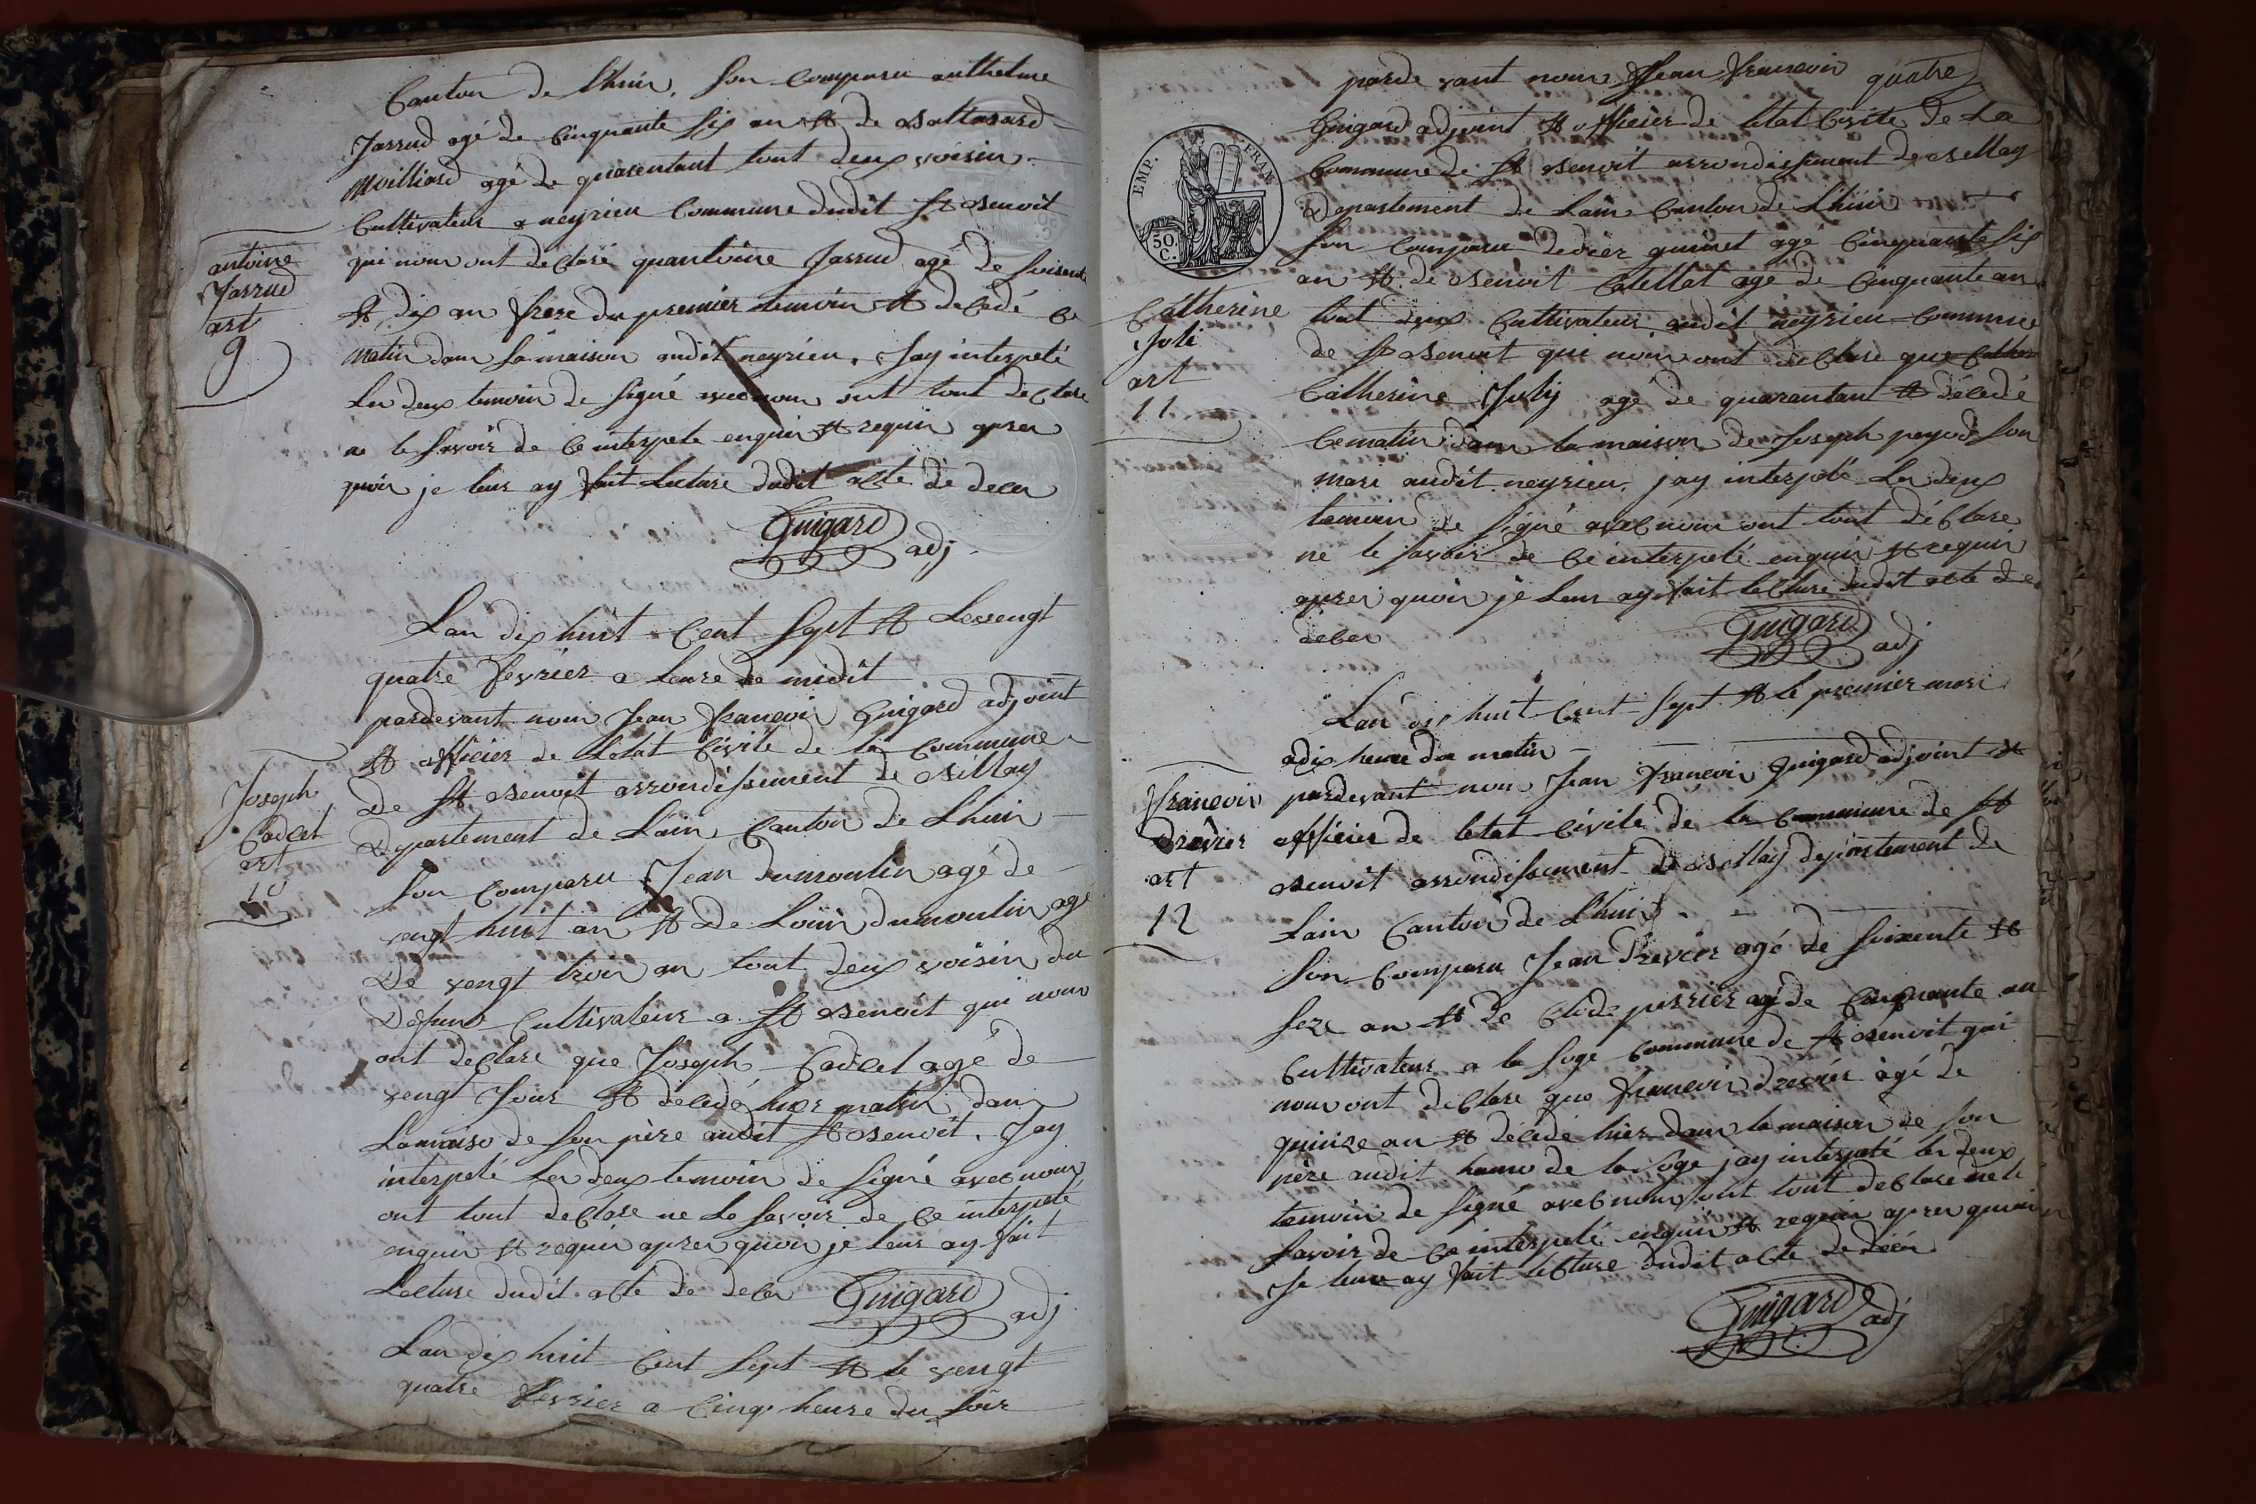 Canton de Lhuis. Son comparu anthelme
Jarrud agé de cinquante six an et de Baltasard
Moilliard agé de quarentant tout deux voisin
Cultivateur a neyrieu Commune dudit St Benoit
qui nous ont declaré quantoine Jarrud agé de soisente
et dix an frere du premier temoin et decedé ce
matin dans sa maison audit neyrieu. Jay interpeté
Les deux temoin de signé avec nous ont tout declare
ne le savoir de ce interpete enquis et requis apres
quoi je leur ay fait Lecture dudit acte de deces
Guigard adj
antoine
Jarrud
art
9
Lan dix huit Cent Sept et Levengt
quatre fevrier a Leure de midit
pardevant nous Jean francois Guigard adjoint
et officier de Letat Civile de la Commune
De St Benoit arrondissement de Billay
Departement de Lain Canton de Lhuis
Son comparu Jean dumoulin agé de
vengt huit an et De Louis dumoulin agé
De vengt trois an tout deux voisin du
Defunt Cultivateur a St Benoit qui nous
ont declare que Joseph Cadlet agé de
vengt Jour et decedé hier matin dans
Lamaiso de son père audit St Benoit. Jay
interpeté Les deux temoin de signé avec nous
ont tout declare ne Le savoir de ce interpeté
enquis et requis apres quoi je leur ay fait
Lecture dudit acte de deces Guigard adj
Joseph
Cadlet
art
10
Lan dix huit Cent Sept et le vengt
quatre fevrier a Cinq heure du soir
parde vant nous Jean francois quatre
Guigard adjoint et officier de letat Civile de La
Commune de St Benoit arrondissement de Bellay
Departement de Lain Canton de Lhuis
Son comparu Dedier guinet agé Cinquante six
an et de Benoit Catellat agé de Cinquante an
tout deux Cultivateur audit neyrieu Commune
de St Benoit qui nous ont declare que
Catherine Joly agé de quarantant et décedé
Cematin dans la maison de Joseph son
mari audit neyrieu, jay interpeté Les deux
temoin de signé avec nous ont tout déclare
ne le savoir de ce interpeté enquis et requis
apres quoi je leur ay fait lecture dudit acte de
deces
Guigard adj
EMP. FRAN.
50. C.
Catherine
Joli
art
11
Lan dix huit Cent Sept et le premier mars
adix heure du matin
pardevant nous Jean francois Guigard adjoint et
officier de letat Civile de la Commune de St
Benoit arrondissement de Bellay departement de
Lain Canton de Lhuis
Son comparu Jean Drevier agé de soixente et
seze an et de Clode perrier agé de Cinquante an
Cultivateur a la foge Commune de St Benoit qui
nous ont declare que francois drevier agé de
quinze an et décedé hier dans la maison de son
père audit hamo de la foge jay interpeté les deux
temoin de signé avec nous ont tout declare ne le
savoir de ce interpeté enquis et requis apres quoi
Je leur ay fait lecture dudit acte de décés
Guigard adj
francois
drevier
art
12